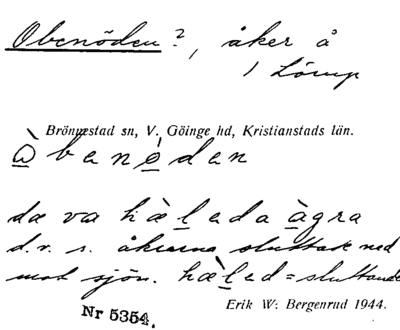 Obenöden?, åker å
1 Lörup
Brönnestad sn, V. Göinge hd, Kristianstads län.
àbanödan
dæ va hæ̀leda àgra
d.v.s. åkrarna sluttade ned
mot sjön. hæ̀led = sluttande
Erik W: Bergenrud 1944.
Nr 5354.